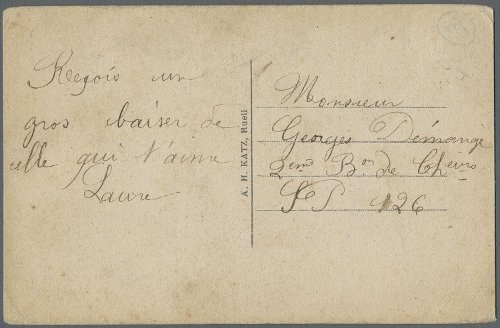 Reçois un
gros baiser de
celle qui t'aime
Laure
A. H. KATZ, Rueil
Monsieur
Georges Démange
2ème Bon de Cheurs
SP 126